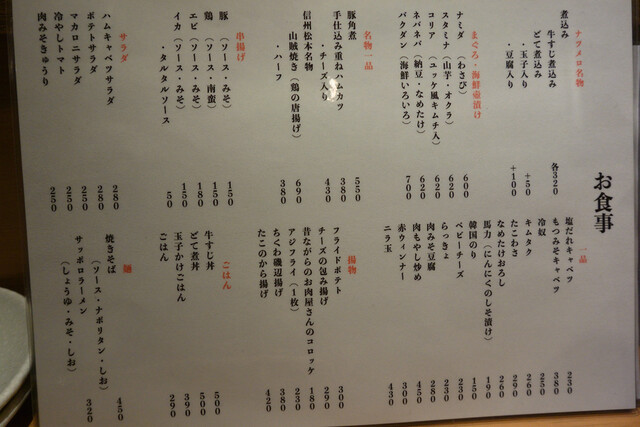 お食事
ナツメロ名物
煮込み
牛すじ煮込み
どて煮込み 各320
・玉子入り +50
・豆腐入り +100
まぐろ・海鮮壷漬け
ナミダ(わさび) 600
スタミナ(山芋・オクラ) 620
コリア(ユッケ風キムチ入) 620
ネバネバ(納豆・なめたけ) 620
バクダン(海鮮いろいろ) 700
名物一品
豚角煮 550
手仕込み重ねハムカツ 380
・チーズ入り 430
信州松本名物
山賊焼き(鶏の唐揚げ) 690
・ハーフ 380
串揚げ
豚(ソース・みそ) 150
鶏(ソース・南蛮) 150
エビ(ソース・みそ) 180
イカ(ソース・みそ) 150
・タルタルソース 50
サラダ
ハムキャベツサラダ 280
ポテトサラダ 280
マカロニサラダ 250
冷やしトマト 250
肉みそきゅうり 250
一品
塩だれキャベツ 230
もつみそキャベツ 380
冷奴 250
キムタク 260
たこわさ 290
なめたけおろし 260
馬力(にんにくのしそ漬け) 190
韓国のり 150
ベビーチーズ 230
らっきょ 230
肉みそ豆腐 280
肉もやし炒め 450
赤ウィンナー 300
ニラ玉 430
揚物
フライドポテト 300
チーズの包み揚げ 290
昔ながらのお肉屋さんのコロッケ 180
アジフライ(1枚) 230
ちくわ磯辺揚げ 380
たこのから揚げ 420
ごはん
牛すじ丼 500
どて煮丼 500
玉子かけごはん 390
ごはん 290
麺
焼きそば
(ソース・ナポリタン・しお) 450
サッポロラーメン
(しょうゆ・みそ・しお) 320